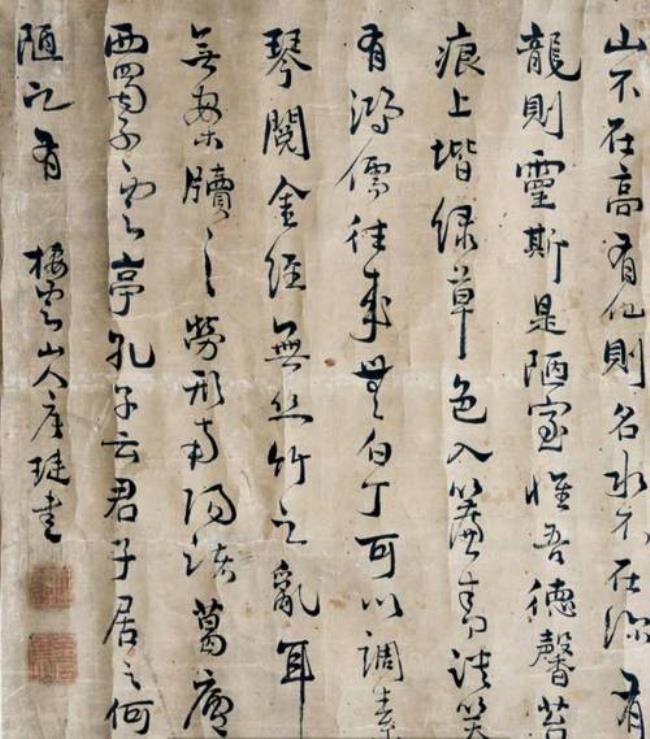 山不在高有仙則名水不在深有
龍則靈斯是陋室惟吾德馨苔
痕上堦緑草色入簾青談笑
有鴻儒往來無白丁可以調素
琴閱金經無丝竹之亂耳
無案牘之勞形南陽諸葛廬
西蜀子雲亭孔子云君子居之何
陋之有 棲雲山人唐璉書